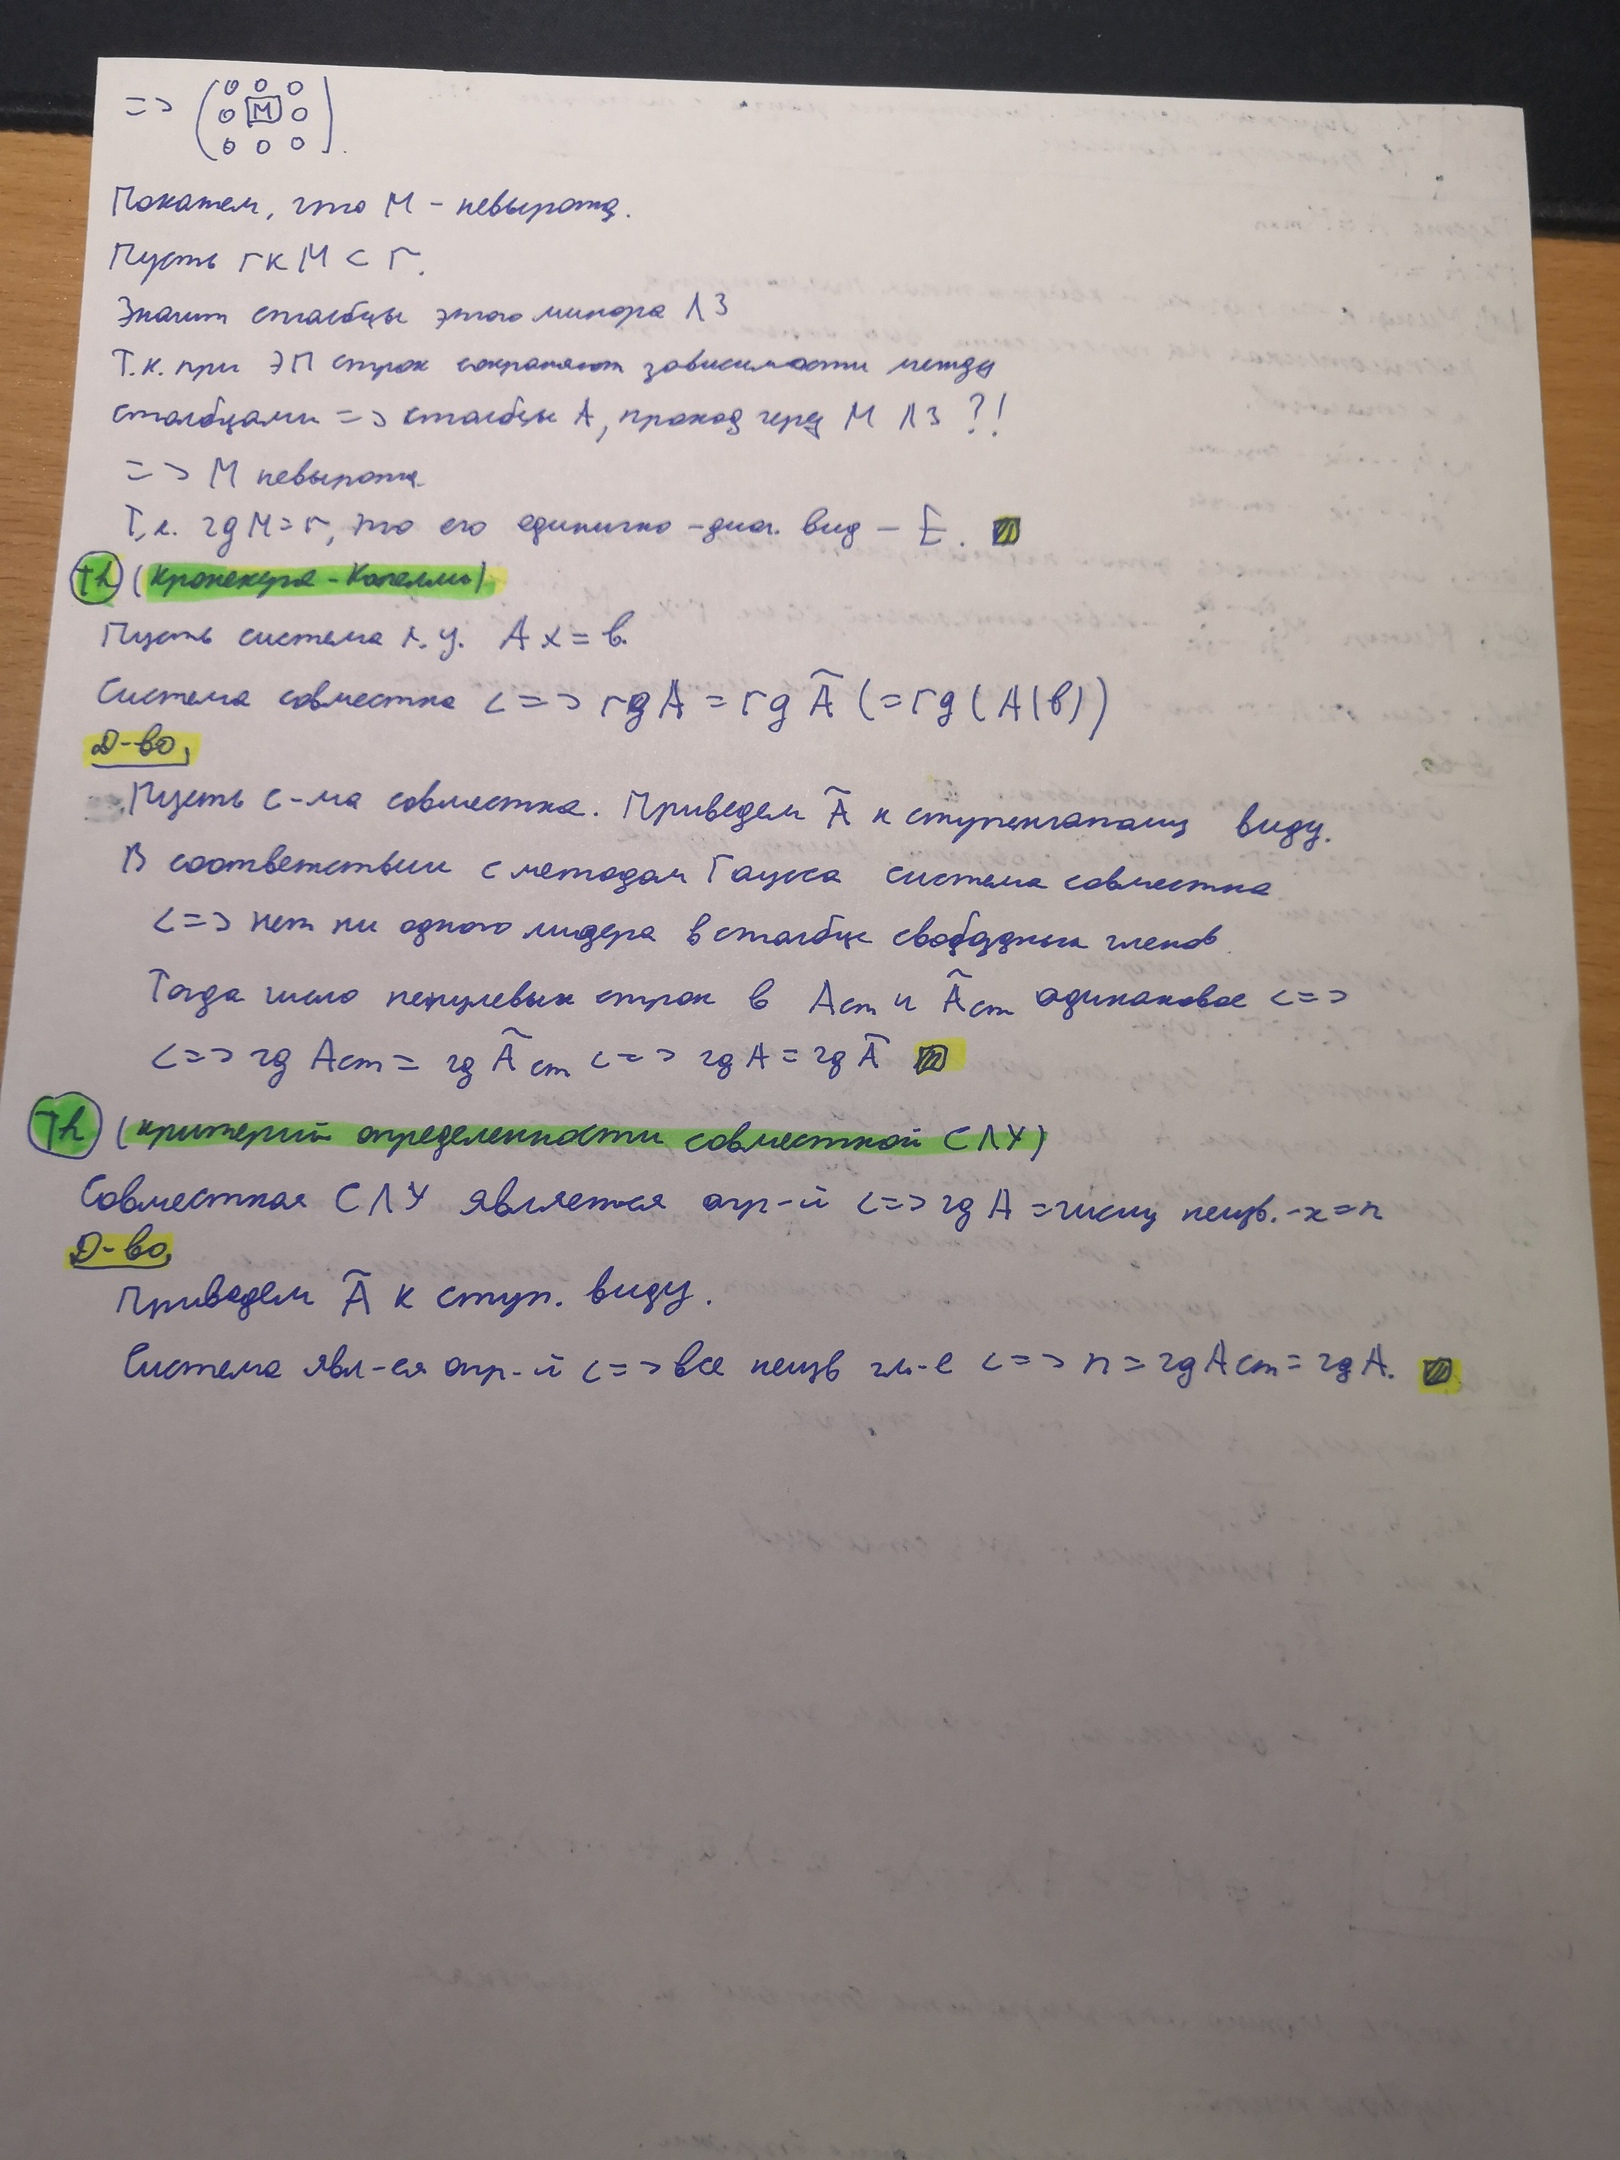 => ( 0 0 0
0 M 0
0 0 0 ).
Покажем, что M - невырожд.
Пусть rk M < r.
Значит столбцы этого минора ЛЗ
Т.к. при ЭП строк сохраняют зависимости между
столбцами => столбцы A, проход через M ЛЗ ?!
=> M невырожд.
Т.к. rg M = r, то его единично-диаг. вид - E.
Th (Кронекера-Капелли)
Пусть система л.у. Ax = b.
Система совместна <=> rg A = rg Ã (= rg (A|b))
Д-во,
Пусть с-ма совместна. Приведем Ã к ступенчатому виду.
В соответствии с методом Гаусса система совместна
<=> нет ни одного лидера в столбце свободных членов.
Тогда число ненулевых строк в Aст и Ãст одинаковое <=>
<=> rg Aст = rg Ãст <=> rg A = rg Ã
Th (критерий определенности совместной СЛУ)
Совместная СЛУ является опр-й <=> rg A = числу неизв.-х = n
Д-во,
Приведем Ã к ступ. виду.
Система явл-ся опр-й <=> все неизв гл-е <=> n = rg Aст = rg A.